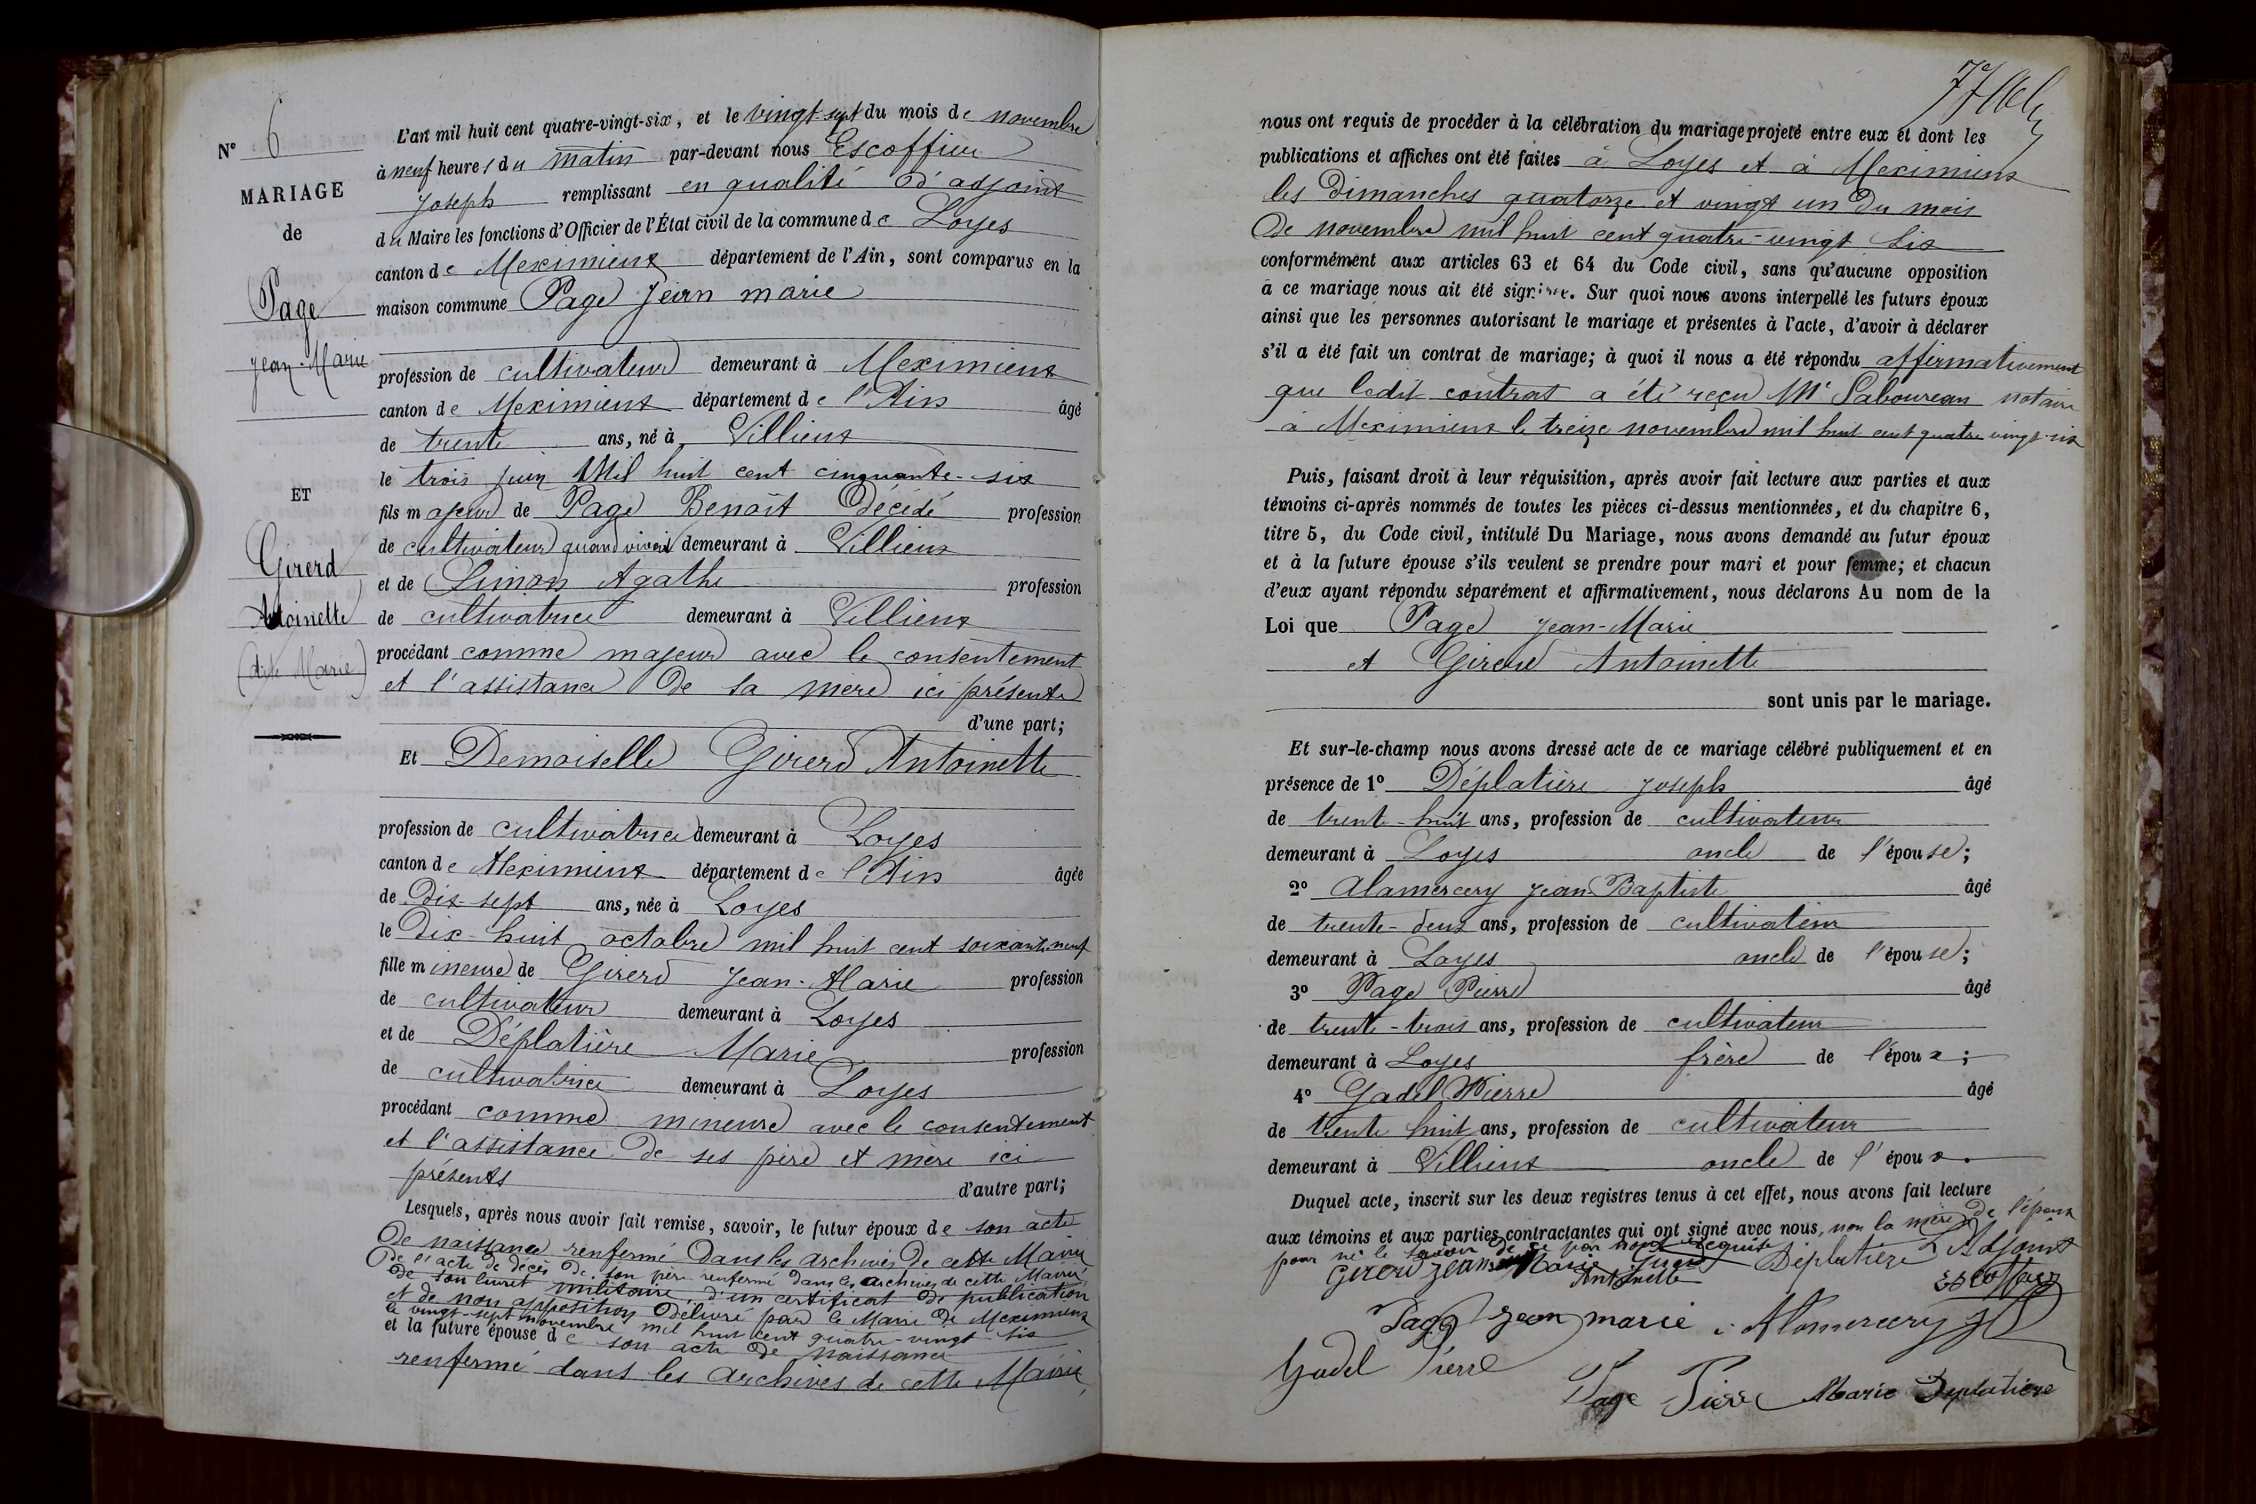 N° 6
MARIAGE
de
Page
Jean-Marie
ET
Girerd
Antoinette
(dite Marie)
L'an mil huit cent quatre-vingt-six, et le vingt-sept du mois de novembre
à neuf heures du matin par-devant nous Escoffier
Joseph remplissant en qualité d'adjoint
du Maire les fonctions d'Officier de l'État civil de la commune de Loyes
canton de Meximieux département de l'Ain, sont comparus en la
maison commune Page Jean marie
profession de cultivateur demeurant à Meximieux
canton de Meximieux département de l'Ain âgé
de trente ans, né à Villieux
le trois juin Mil huit cent cinquante-six
fils majeur de Page Benoît Décédé profession
de cultivateur quand vivait demeurant à Villieux
et de Simon Agathe profession
de cultivatrice demeurant à Villieux
procédant comme majeur avec le consentement
et l'assistance de sa mère ici présente
d'une part;
Et Demoiselle Girerd Antoinette
profession de cultivatrice demeurant à Loyes
canton de Meximieux département de l'Ain âgée
de Dix-sept ans, née à Loyes
le Dix-huit octobre mil huit cent soixante-neuf
fille mineure de Girerd Jean-Marie profession
de cultivateur demeurant à Loyes
et de Déplatière Marie profession
de cultivatrice demeurant à Loyes
procédant comme mineure avec le consentement
et l'assistance de ses père et mère ici
présents d'autre part;
Lesquels, après nous avoir fait remise, savoir, le futur époux de son acte
de naissance renfermé dans les archives de cette Mairie
de l'acte de décès de son père renfermé dans les archives de cette Mairie
de son livret militaire, d'un certificat de publication
et de non opposition délivré par le Maire de Meximieux
le vingt-sept novembre mil huit cent quatre-vingt six
et la future épouse de son acte de naissance
renfermé dans les archives de cette Mairie
nous ont requis de procéder à la célébration du mariage projeté entre eux et dont les
publications et affiches ont été faites à Loyes et à Meximieux
les Dimanches quatorze et vingt un du mois
de novembre mil huit cent quatre-vingt six
conformément aux articles 63 et 64 du Code civil, sans qu'aucune opposition
à ce mariage nous ait été signifiée. Sur quoi nous avons interpellé les futurs époux
ainsi que les personnes autorisant le mariage et présentes à l'acte, d'avoir à déclarer
s'il a été fait un contrat de mariage; à quoi il nous a été répondu affirmativement
que ledit contrat a été reçu Me Laboureau notaire
à Meximieux le treize novembre mil huit cent quatre vingt-six
Puis, faisant droit à leur réquisition, après avoir fait lecture aux parties et aux
témoins ci-après nommés de toutes les pièces ci-dessus mentionnées, et du chapitre 6,
titre 5, du Code civil, intitulé Du Mariage, nous avons demandé au futur époux
et à la future épouse s'ils veulent se prendre pour mari et pour femme; et chacun
d'eux ayant répondu séparément et affirmativement, nous déclarons Au nom de la
Loi que Page Jean-Marie
et Girerd Antoinette
sont unis par le mariage.
Et sur-le-champ nous avons dressé acte de ce mariage célébré publiquement et en
présence de 1° Déplatière Joseph âgé
de trente-huit ans, profession de cultivateur
demeurant à Loyes oncle de l'épouse;
2° Alamercery Jean Baptiste âgé
de trente-deux ans, profession de cultivateur
demeurant à Loyes oncle de l'épouse;
3° Page Pierre âgé
de trente-trois ans, profession de cultivateur
demeurant à Loyes frère de l'époux;
4° Gadel Pierre âgé
de trente huit ans, profession de cultivateur
demeurant à Villieux oncle de l'époux.
Duquel acte, inscrit sur les deux registres tenus à cet effet, nous avons fait lecture
aux témoins et aux parties contractantes qui ont signé avec nous, non la mère de l'époux
pour ne le savoir de ce par nous requise
Girerd Jean Marie Antoinette Déplatière L'Adjoint
Escoffier
Page Jean marie Alamercery JB
Gadel Pierre Page Pierre Marie Deplatiere